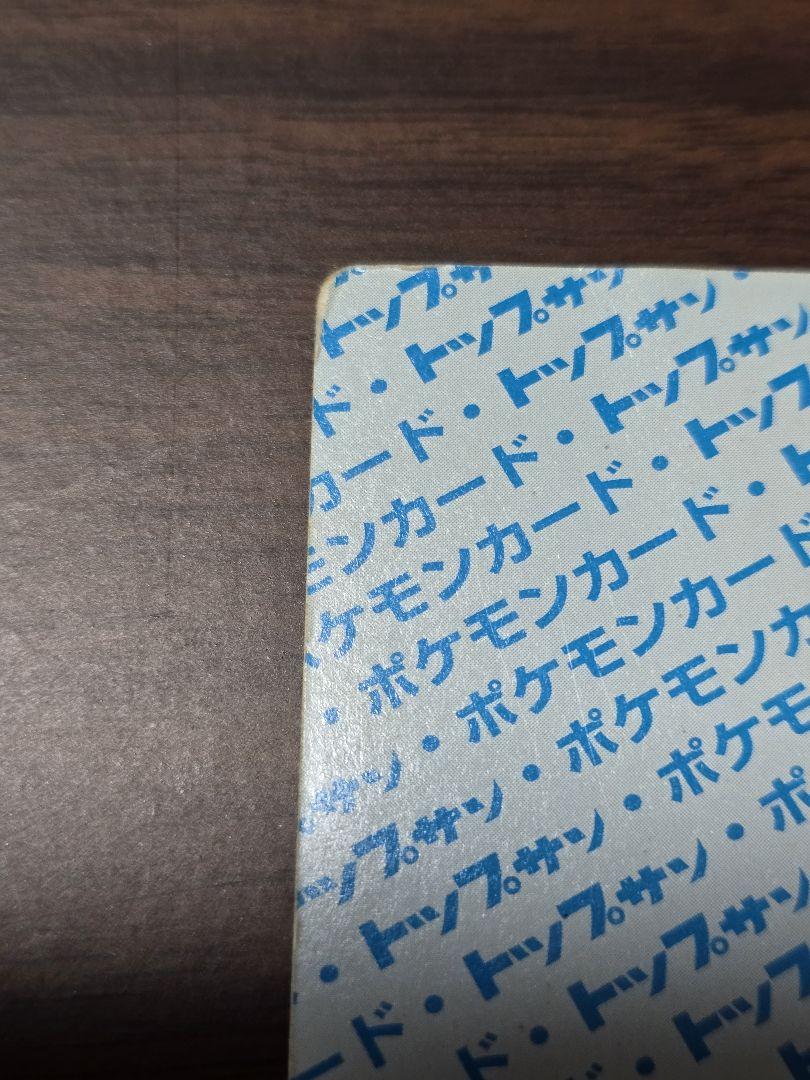 トップサ
トップサン
ド・トップサン・
カード・トップサン・
モンカード・トップサン
ケモンカード・トップ
・ポケモンカード・ト
サン・ポケモンカード
トップサン・ポケモンカ
・トップサン・ポケモ
ード・トップサン・ポ
ド・トップサン